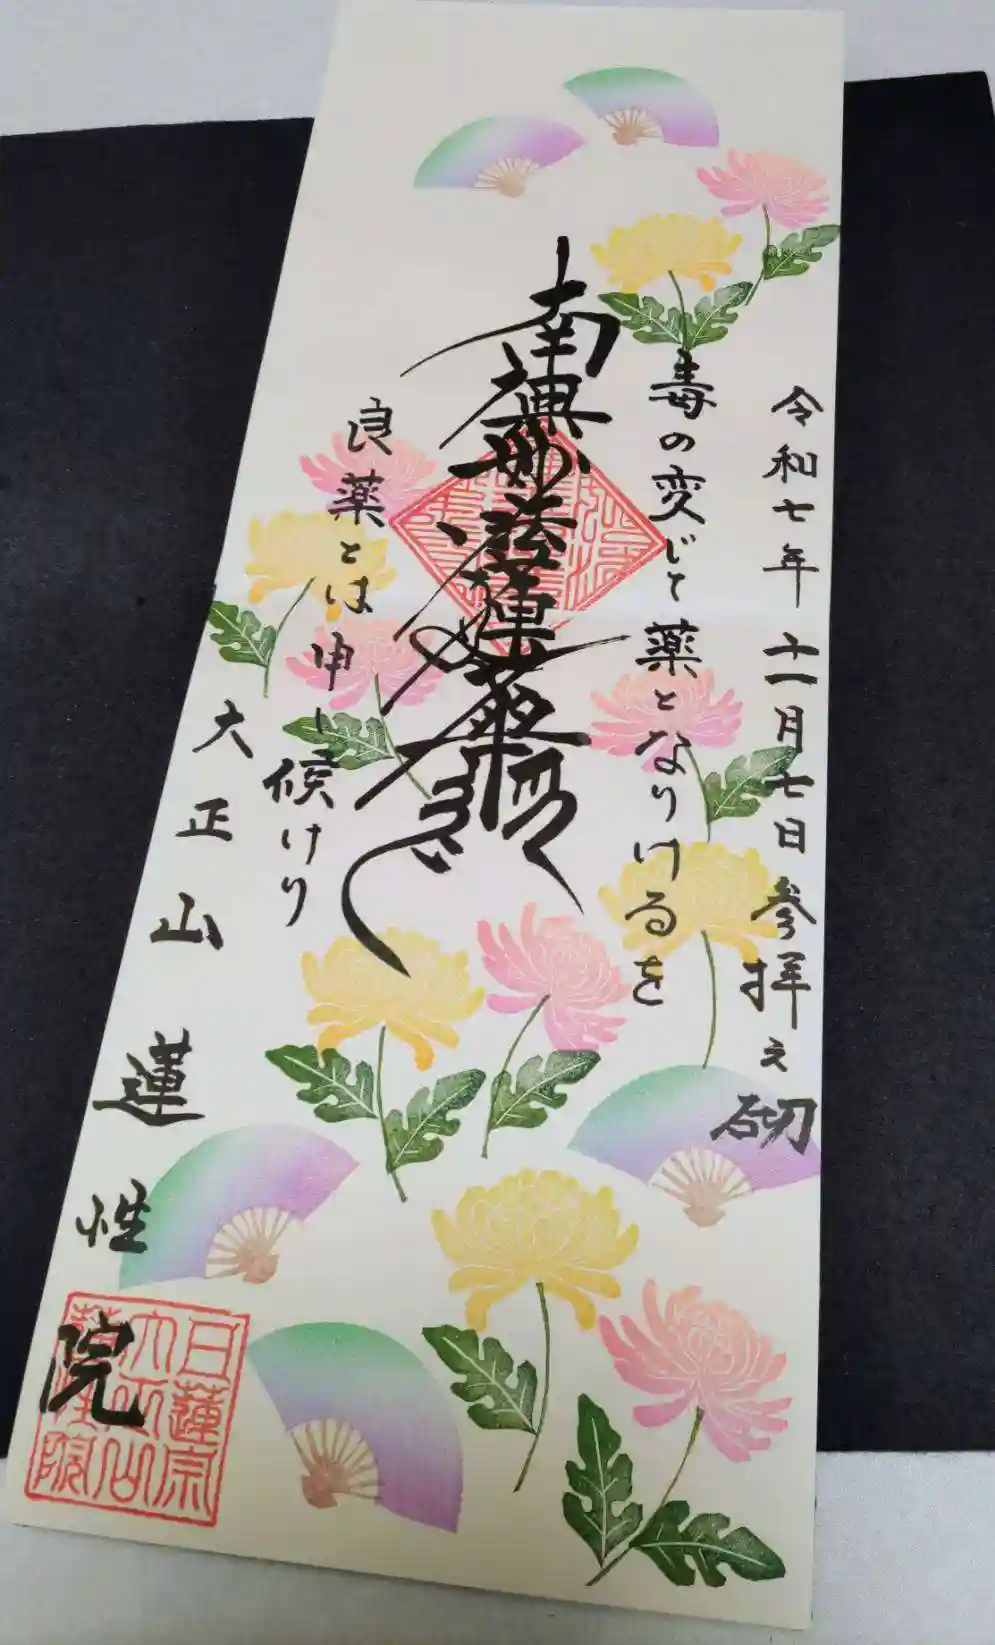 令和七年十一月七日参拝之砌
毒の変じて薬となりけるを
南無妙法蓮華経
良薬とは申し候けり
大正山 蓮性院
日蓮宗
大正山
蓮性院